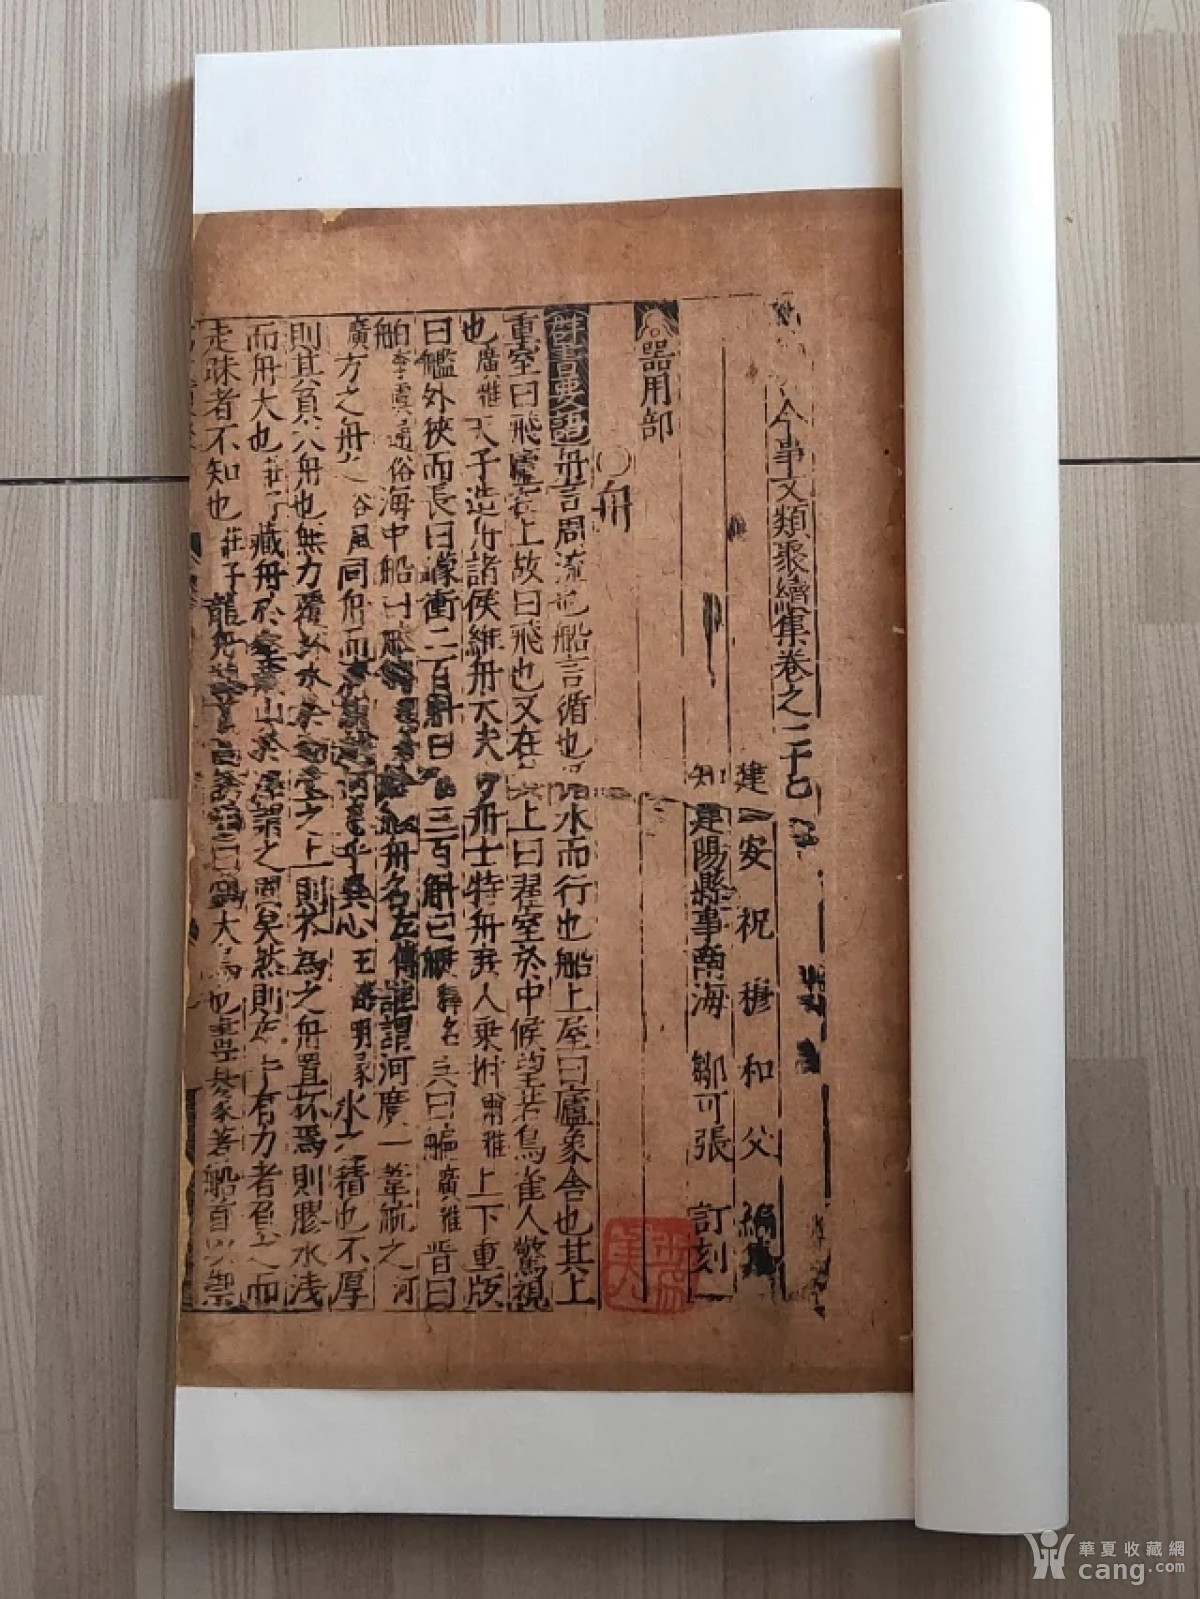 今事文類聚續集卷之二十
建安祝穆和父編集
知建陽縣事南海鄒可張訂刻
器用部
○舟
群書要語舟言周流也船言循也循水而行也船上屋曰廬象舍也其上
重室曰飛廬在上故曰飛也又在其上曰翟室於中候望若鳥雀人驚視
也廣雅天子造舟諸侯維舟大夫方舟士特舟庶人乘柎爾雅上下重版
曰艦外狹而長曰艨衝二百斛曰三百斛曰釋名吳曰艑廣雅晉曰
舶李虔通俗海中船曰舟名左傳誰謂河廣一葦航之河
廣方之舟之谷風同舟而乎異心王明象水之積也不厚
則其負大舟也無力覆杯水於之上則芥為之舟置杯焉則膠水浅
而舟大也莊子藏舟於山於澤謂之固矣然則夜半有力者負之而
走昧者不知也莊子龍舟曰大鳥也畫其象著船首以禦
華夏收藏網
cang.com